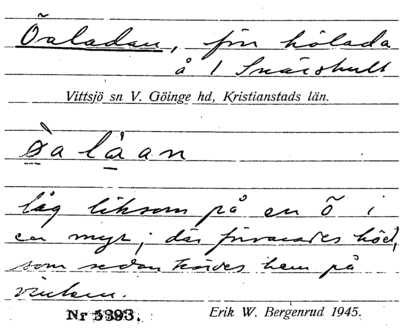 Öaladan, förr hölada
å 1 Snärshult
Vittsjö sn V. Göinge hd, Kristianstads län.
òa làan
låg liksom på en ö i
en myr; där förvarades höet,
som sedan kördes hem på
vintern.
Nr 5393. Erik W. Bergenrud 1945.